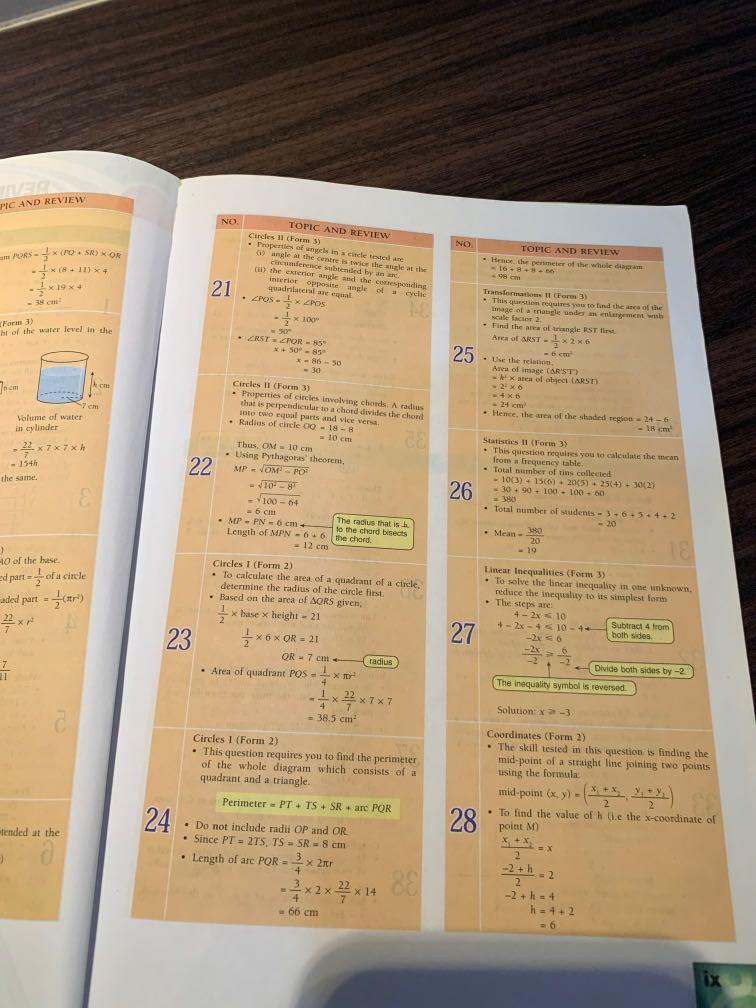 PIC AND REVIEW
um PQRS = 1/2 × (PQ + SR) × QR
= 1/2 × (8 + 11) × 4
= 1/2 × 19 × 4
= 38 cm²
(Form 3)
ht of the water level in the
6 cm
h cm
7 cm
Volume of water
in cylinder
= 22/7 × 7 × 7 × h
= 154h
the same.
AO of the base.
ed part = 1/2 of a circle
aded part = 1/2 (πr²)
22/7 × r²
7
11
tended at the
NO. TOPIC AND REVIEW
21
Circles II (Form 3)
• Properties of angels in a circle tested are
(i) angle at the centre is twice the angle at the
circumference subtended by an arc.
(ii) the exterior angle and the corresponding
interior opposite angle of a cyclic
quadrilateral are equal.
• ∠PQS = 1/2 × ∠POS
= 1/2 × 100°
= 50°
• ∠RST = ∠PQR = 85°
x + 50° = 85°
x = 86 – 50
= 30
22
Circles II (Form 3)
• Properties of circles involving chords. A radius
that is perpendicular to a chord divides the chord
into two equal parts and vice versa.
• Radius of circle OQ = 18 – 8
= 10 cm
Thus, OM = 10 cm
• Using Pythagoras' theorem,
MP = √OM² – PO²
= √10² – 8²
= √100 – 64
= 6 cm
• MP = PN = 6 cm
Length of MPN = 6 + 6
= 12 cm
The radius that is ⊥
to the chord bisects
the chord.
23
Circles I (Form 2)
• To calculate the area of a quadrant of a circle,
determine the radius of the circle first.
• Based on the area of ΔQRS given,
1/2 × base × height = 21
1/2 × 6 × QR = 21
QR = 7 cm
radius
• Area of quadrant PQS = 1/4 × πr²
= 1/4 × 22/7 × 7 × 7
= 38.5 cm²
24
Circles I (Form 2)
• This question requires you to find the perimeter
of the whole diagram which consists of a
quadrant and a triangle.
Perimeter = PT + TS + SR + arc PQR
• Do not include radii OP and OR.
• Since PT = 2TS, TS = SR = 8 cm
• Length of arc PQR = 3/4 × 2πr
= 3/4 × 2 × 22/7 × 14
= 66 cm
NO. TOPIC AND REVIEW
• Hence, the perimeter of the whole diagram
= 16 + 8 + 8 + 66
= 98 cm
25
Transformations II (Form 3)
• This question requires you to find the area of the
image of a triangle under an enlargement with
scale factor 2.
• Find the area of triangle RST first.
Area of ΔRST = 1/2 × 2 × 6
= 6 cm²
• Use the relation,
Area of image (ΔR'S'T')
= k² × area of object (ΔRST)
= 2² × 6
= 4 × 6
= 24 cm²
• Hence, the area of the shaded region = 24 – 6
= 18 cm²
26
Statistics II (Form 3)
• This question requires you to calculate the mean
from a frequency table.
• Total number of tins collected
= 10(3) + 15(6) + 20(5) + 25(4) + 30(2)
= 30 + 90 + 100 + 100 + 60
= 380
• Total number of students = 3 + 6 + 5 + 4 + 2
= 20
• Mean = 380/20
= 19
27
Linear Inequalities (Form 3)
• To solve the linear inequality in one unknown,
reduce the inequality to its simplest form
• The steps are:
4 – 2x ⩽ 10
4 – 2x – 4 ⩽ 10 – 4
Subtract 4 from
both sides.
–2x ⩽ 6
–2x/–2 ⩾ 6/–2
Divide both sides by –2.
The inequality symbol is reversed.
Solution: x ⩾ –3
28
Coordinates (Form 2)
• The skill tested in this question is finding the
mid-point of a straight line joining two points
using the formula:
mid-point (x, y) = (x₁ + x₂/2, y₁ + y₂/2)
• To find the value of h (i.e the x-coordinate of
point M)
x₁ + x₂/2 = x
–2 + h/2 = 2
–2 + h = 4
h = 4 + 2
= 6
ix